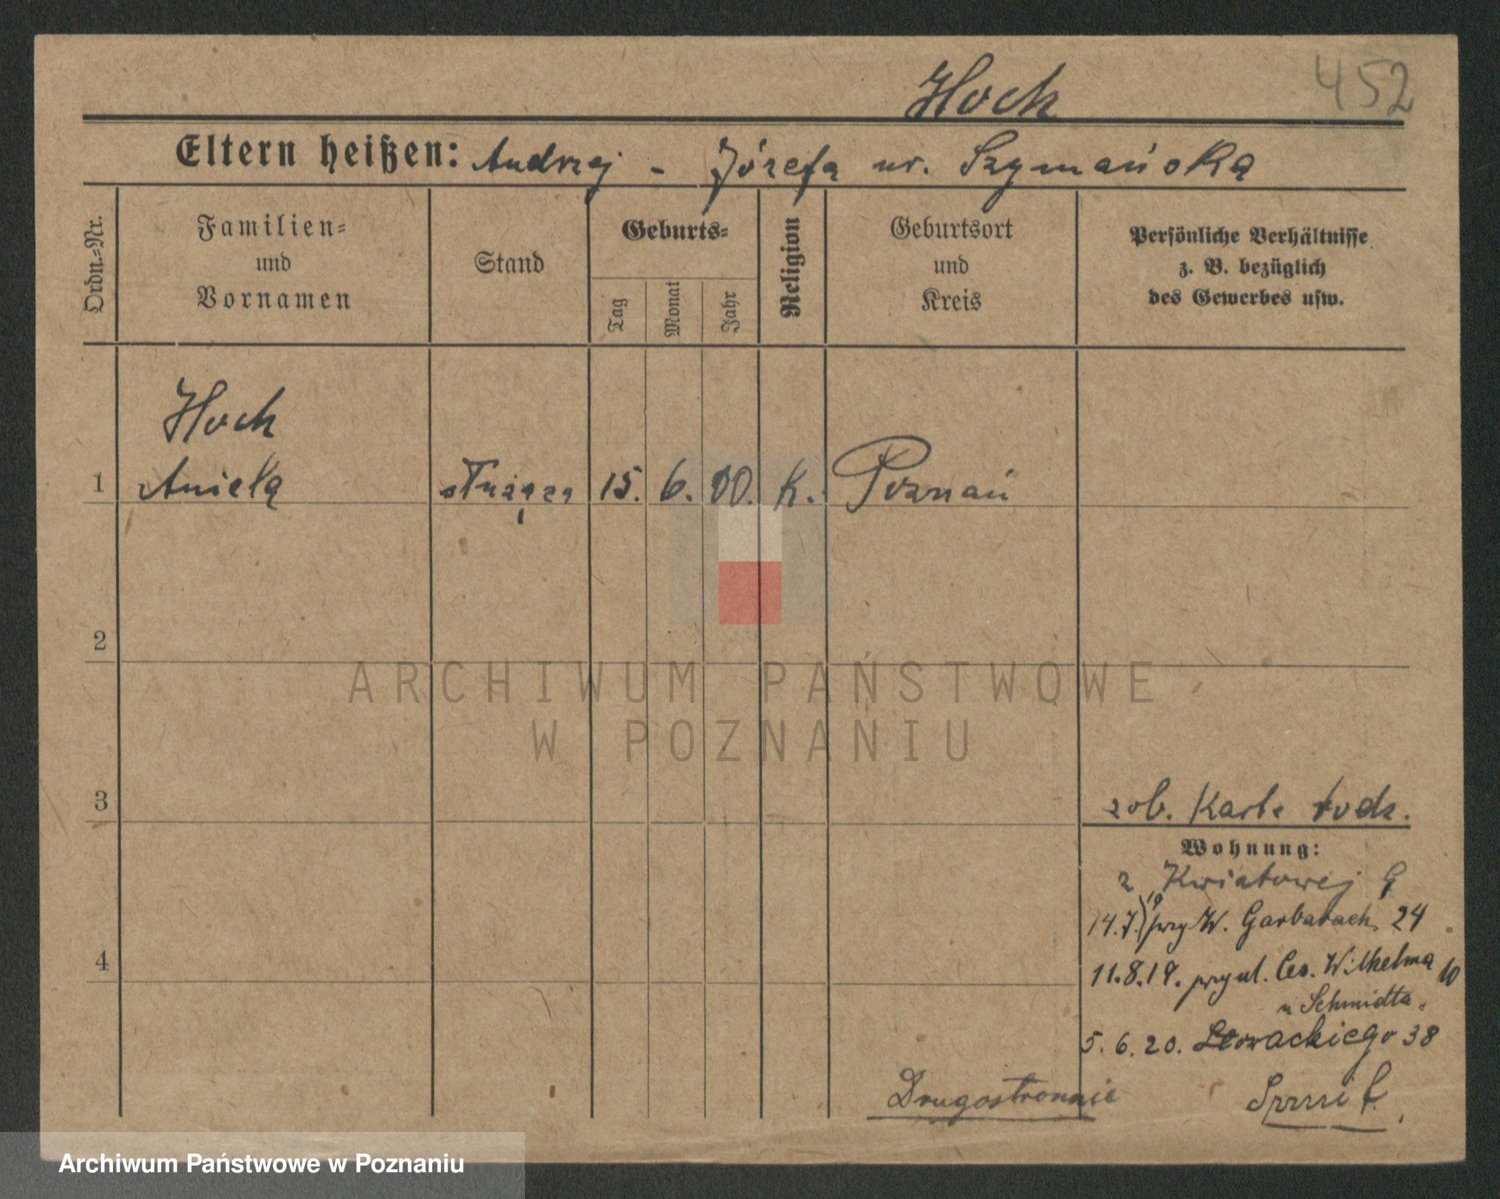 Hoch
452
Eltern heißen: Andrzej - Józefa ur. Szymańska
Ordn.-Nr.
Familien-
und
Vornamen
Stand
Geburts-
Tag
Monat
Jahr
Religion
Geburtsort
und
Kreis
Persönliche Verhältnisse
z. B. bezüglich
des Gewerbes usw.
Hoch
1 Aniela służąca 15. 6. 00. K. Poznań
2
ARCHIWUM PAŃSTWOWE
W POZNANIU
3
zob. Karta rodz.
Wohnung:
z Kwiatowej 9
14.7.19 przy W. Garbarach 24
4
11.8.19. przy ul. Ces. Wilhelma 10
u Schmidta.
5.6.20. Słowackiego 38
Drugostronnie
Archiwum Państwowe w Poznaniu